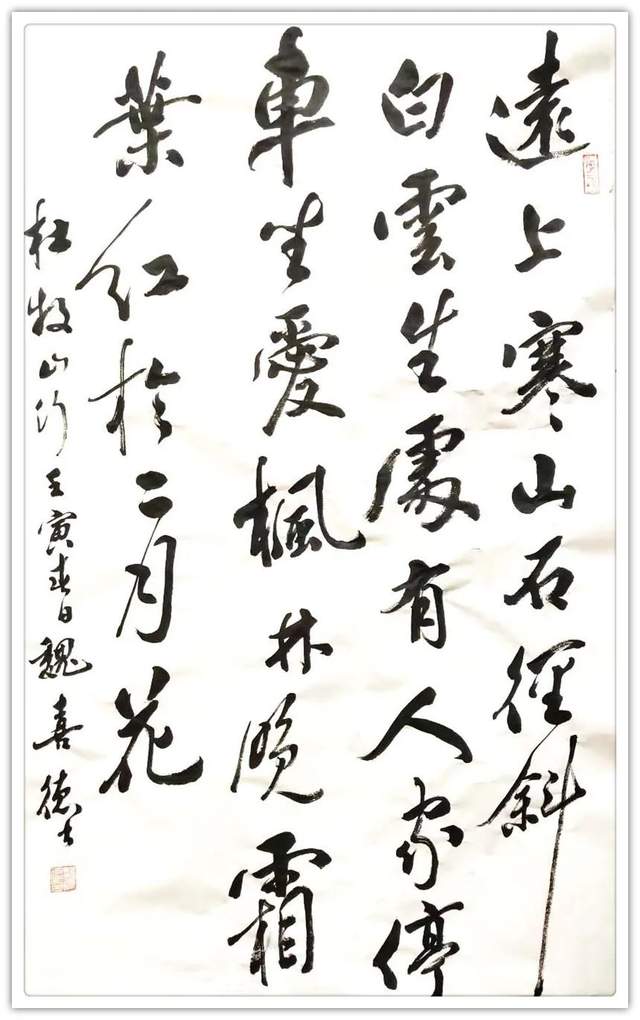 遠上寒山石徑斜
白雲生處有人家停
車坐愛楓林晚霜
葉紅於二月花
杜牧山行壬寅春日魏喜德书